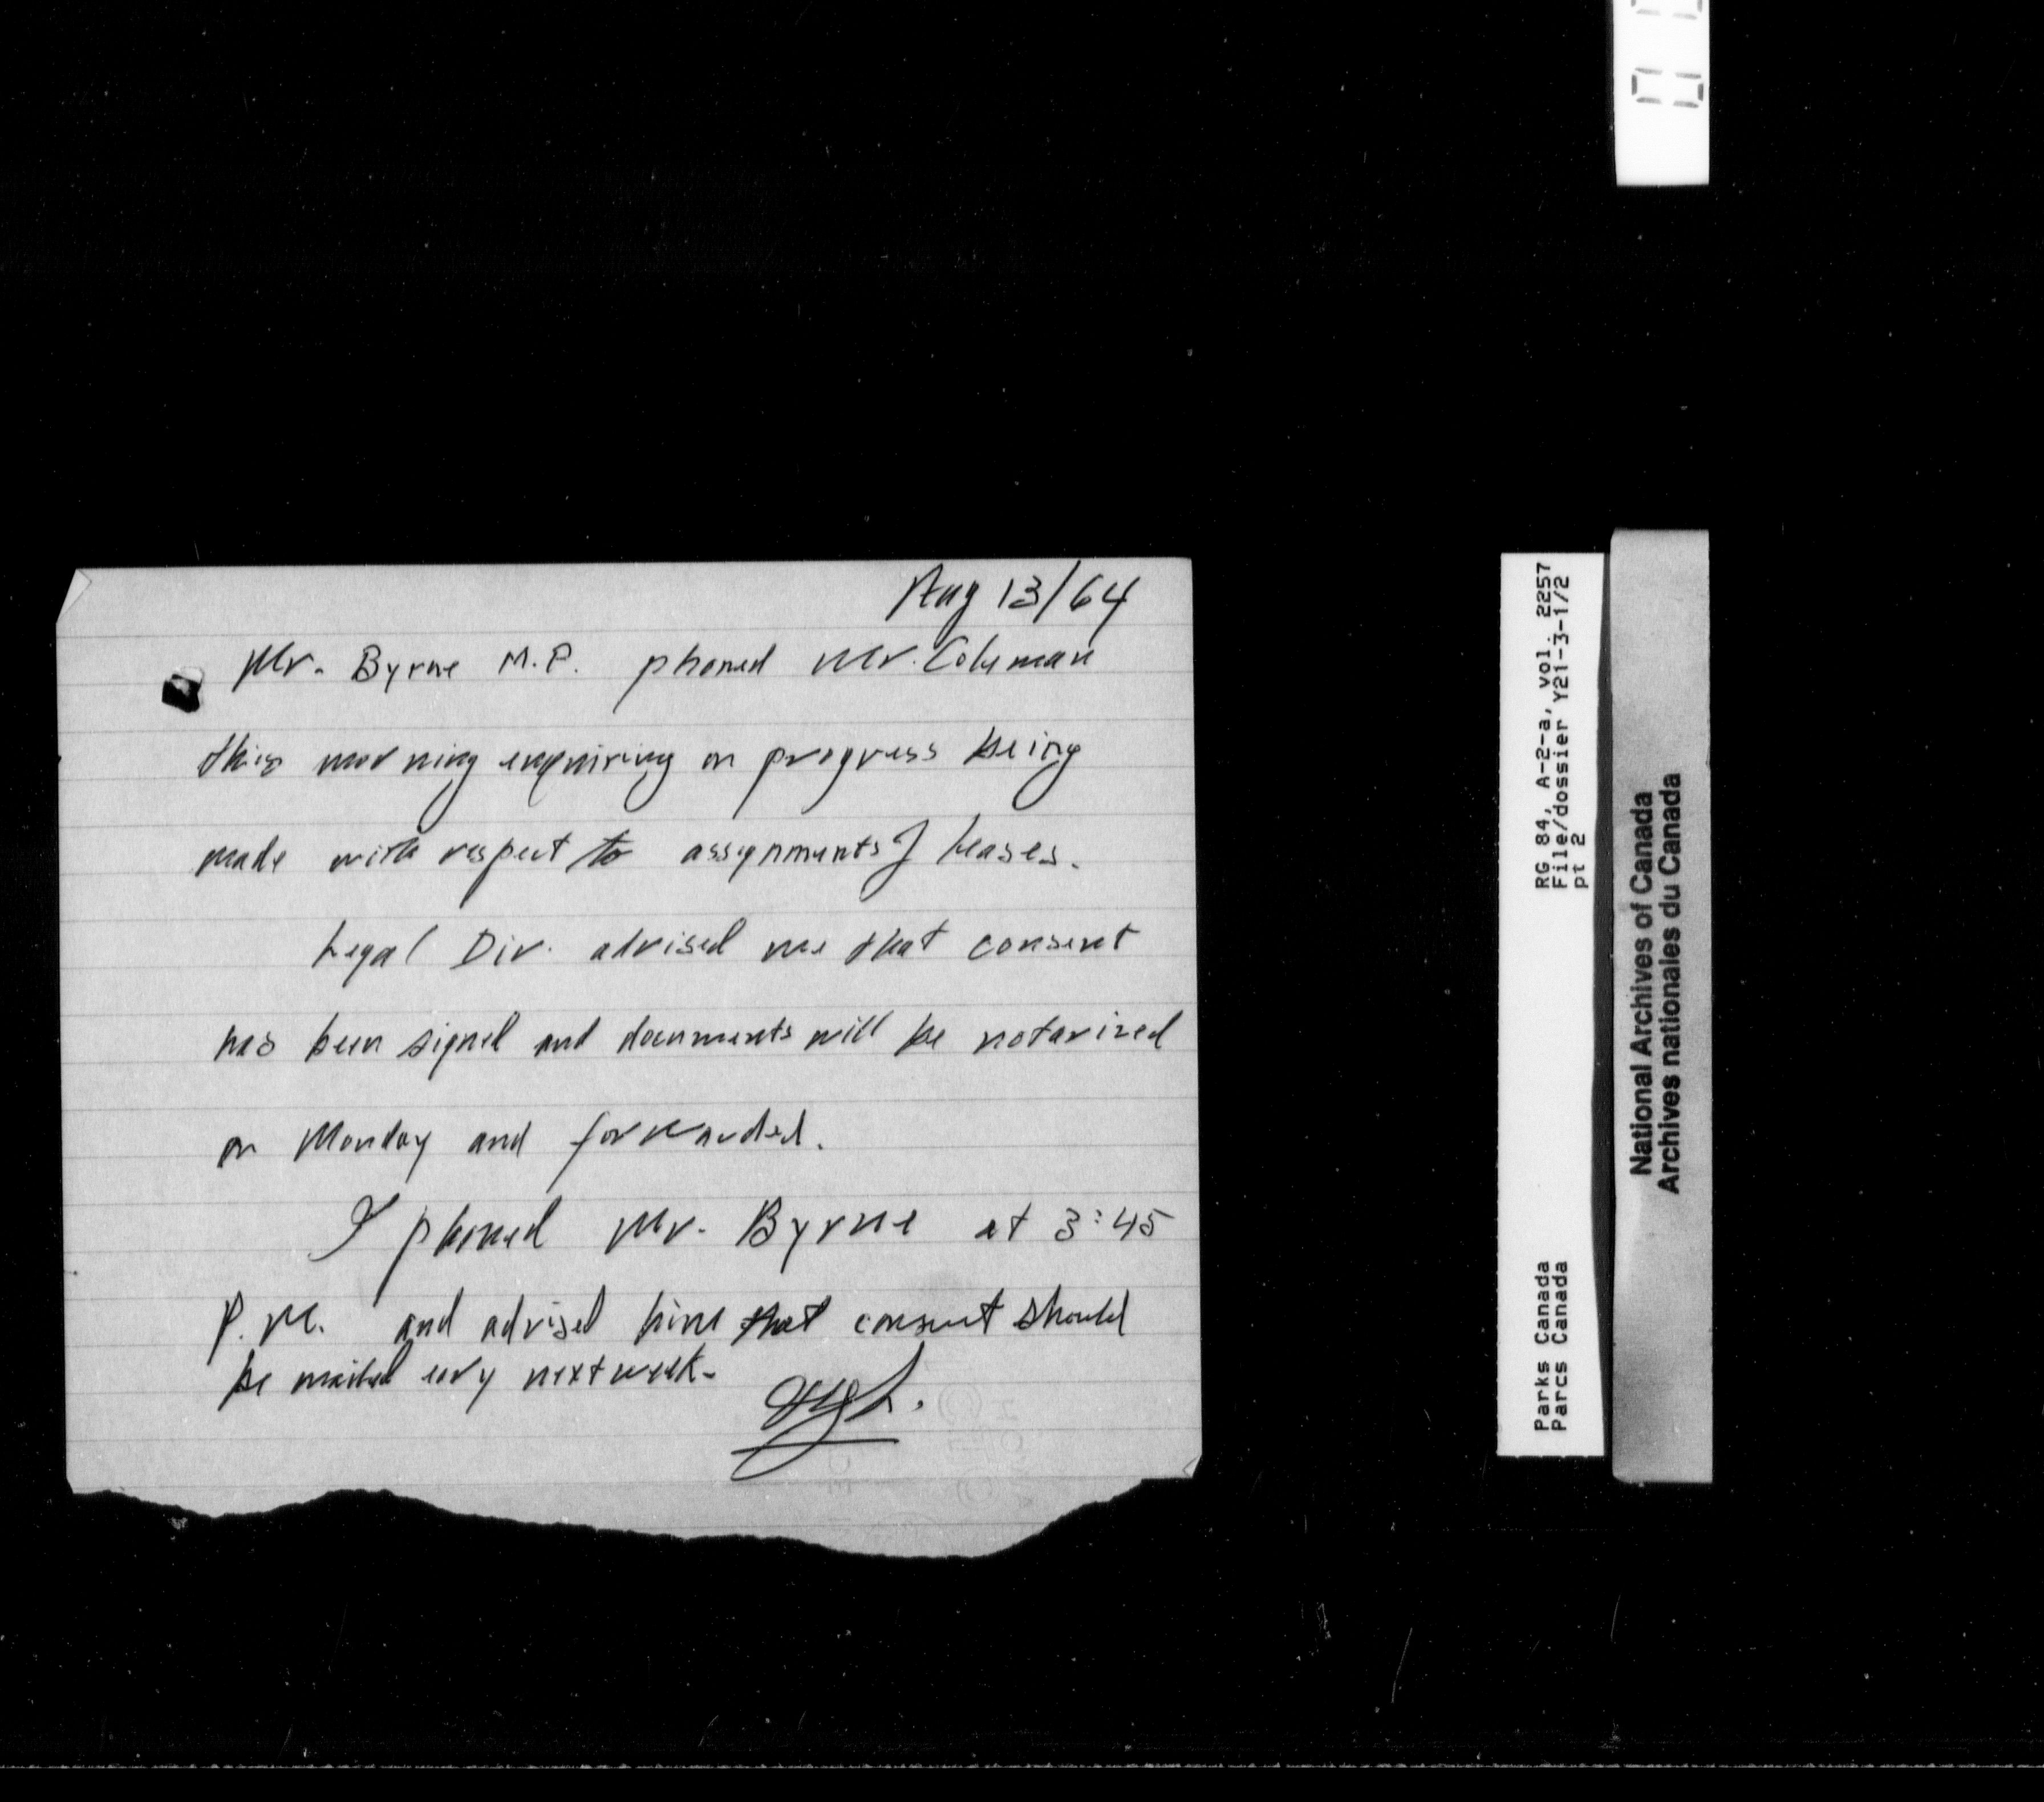 Aug 13/64
Mr. Byrne M.P. phoned Mr. Coleman
this morning enquiring on progress being
made with respect to assignments of leases.
Legal Div. advised me that consent
has been signed and documents will be notarized
on Monday and forwarded.
I phoned Mr. Byrne at 3:45
P.M. and advised him that consent should
be mailed early next week.
RG 84, A-2-a, vol. 2257
File/dossier Y21-3-1/2
pt 2
Parks Canada
Parcs Canada
National Archives of Canada
Archives nationales du Canada